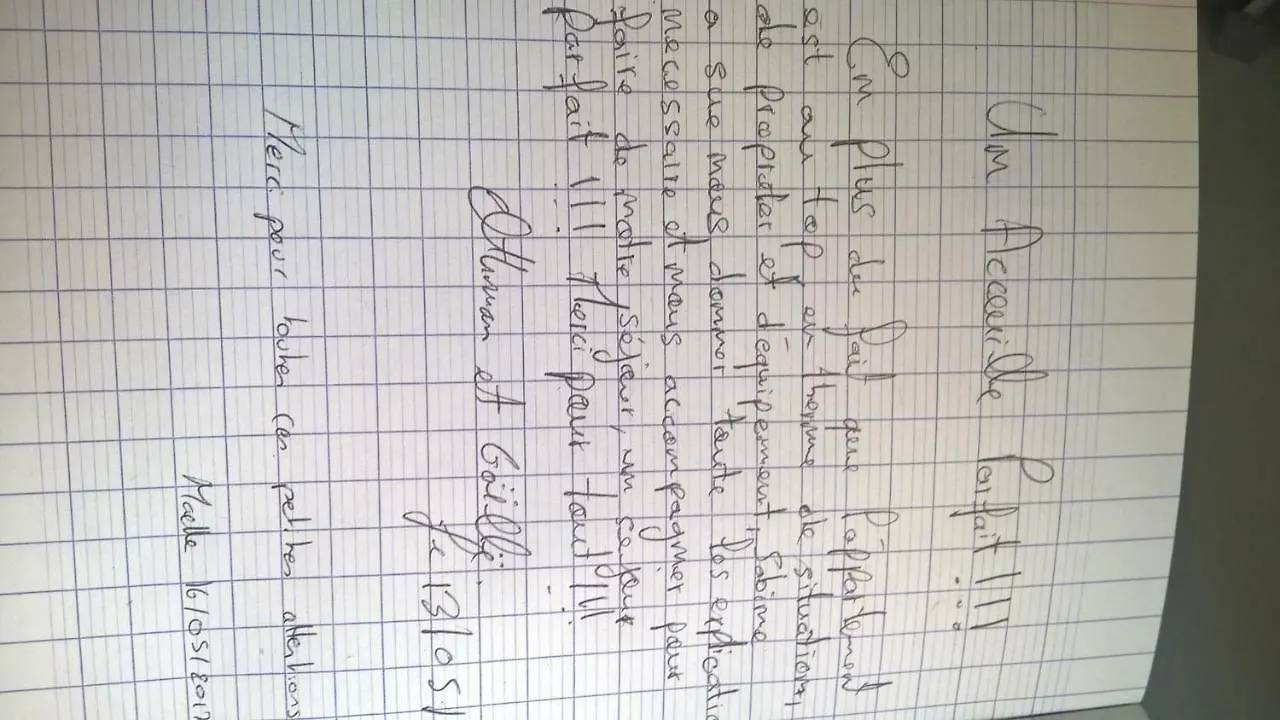 Un Accueille Parfait !!!
En plus du fait que l'appartement
est au top en therme de situation,
de propreter et d'équipement, Sabine
a sue nous donner toute les explicatio
necessaire et nous accompagner pour
faire de notre séjour, un sejour
parfait !!! Merci pour tout !!!
Othman et Gaëlle.
Le 13/05/
Merci pour toutes ces petites attentions
Maelle 16/05/2017